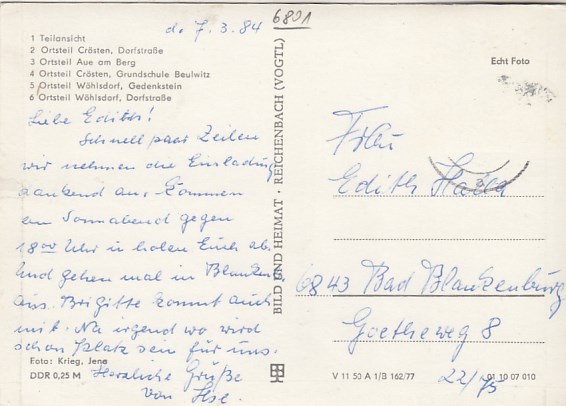 d. 7.3.84
6801
1 Teilansicht
2 Ortsteil Crösten, Dorfstraße
3 Ortsteil Aue am Berg
4 Ortsteil Crösten, Grundschule Beulwitz
5 Ortsteil Wöhlsdorf, Gedenkstein
6 Ortsteil Wöhlsdorf, Dorfstraße
Liebe Edith!
Schnell paar Zeilen
wir nehmen die Einladung
dankend an. Kommen
am Sonnabend gegen
18.00 Uhr u holen Euch ab.
Und gehen mal in Blankenb.
aus. Brigitte kommt auch
mit. Na irgend wo wird
schon Platz sein für uns.
Herzliche Grüße
von Ilse.
Foto: Krieg, Jena
DDR 0,25 M
BILD UND HEIMAT · REICHENBACH (VOGTL)
Echt Foto
Frau
Edith
6843 Bad Blankenburg
Goetheweg 8
V 11 50 A 1/B 162/77
01 10 07 010
22/75